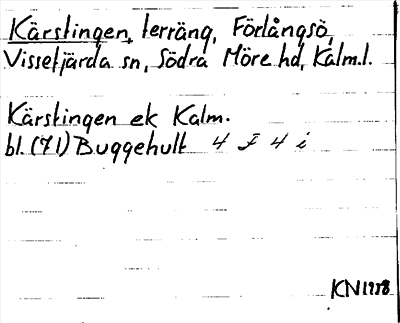 Kärstingen, terräng, Förlångsö,
Vissefjärda sn, Södra Möre hd, Kalm.l.
Kärstingen ek Kalm.
bl. (71) Buggehult 4 F 4 i
KN 1978